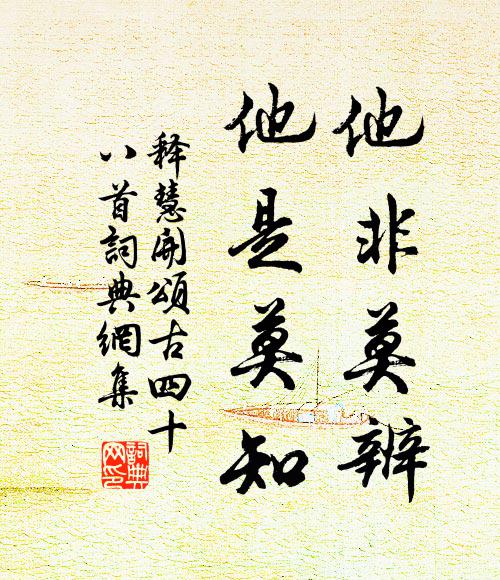 他非莫辨
他是莫知
释慧開頌古四十
八首詞典網集
詞典网印